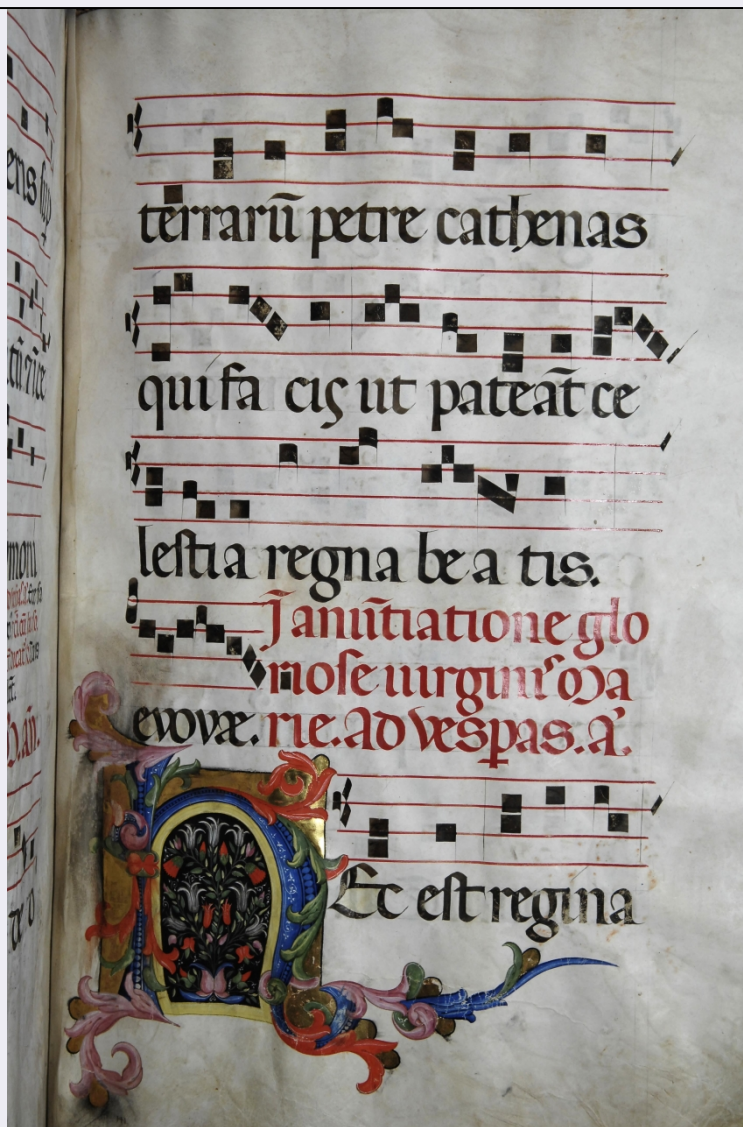 terrarū petre cathenas
qui fa cis ut pateāt ce
lestia regna be a tis.
In anūtiatione glo
riose uirginis Ma
evovæ. rie. Ad vesperas. a.
HEc est regina